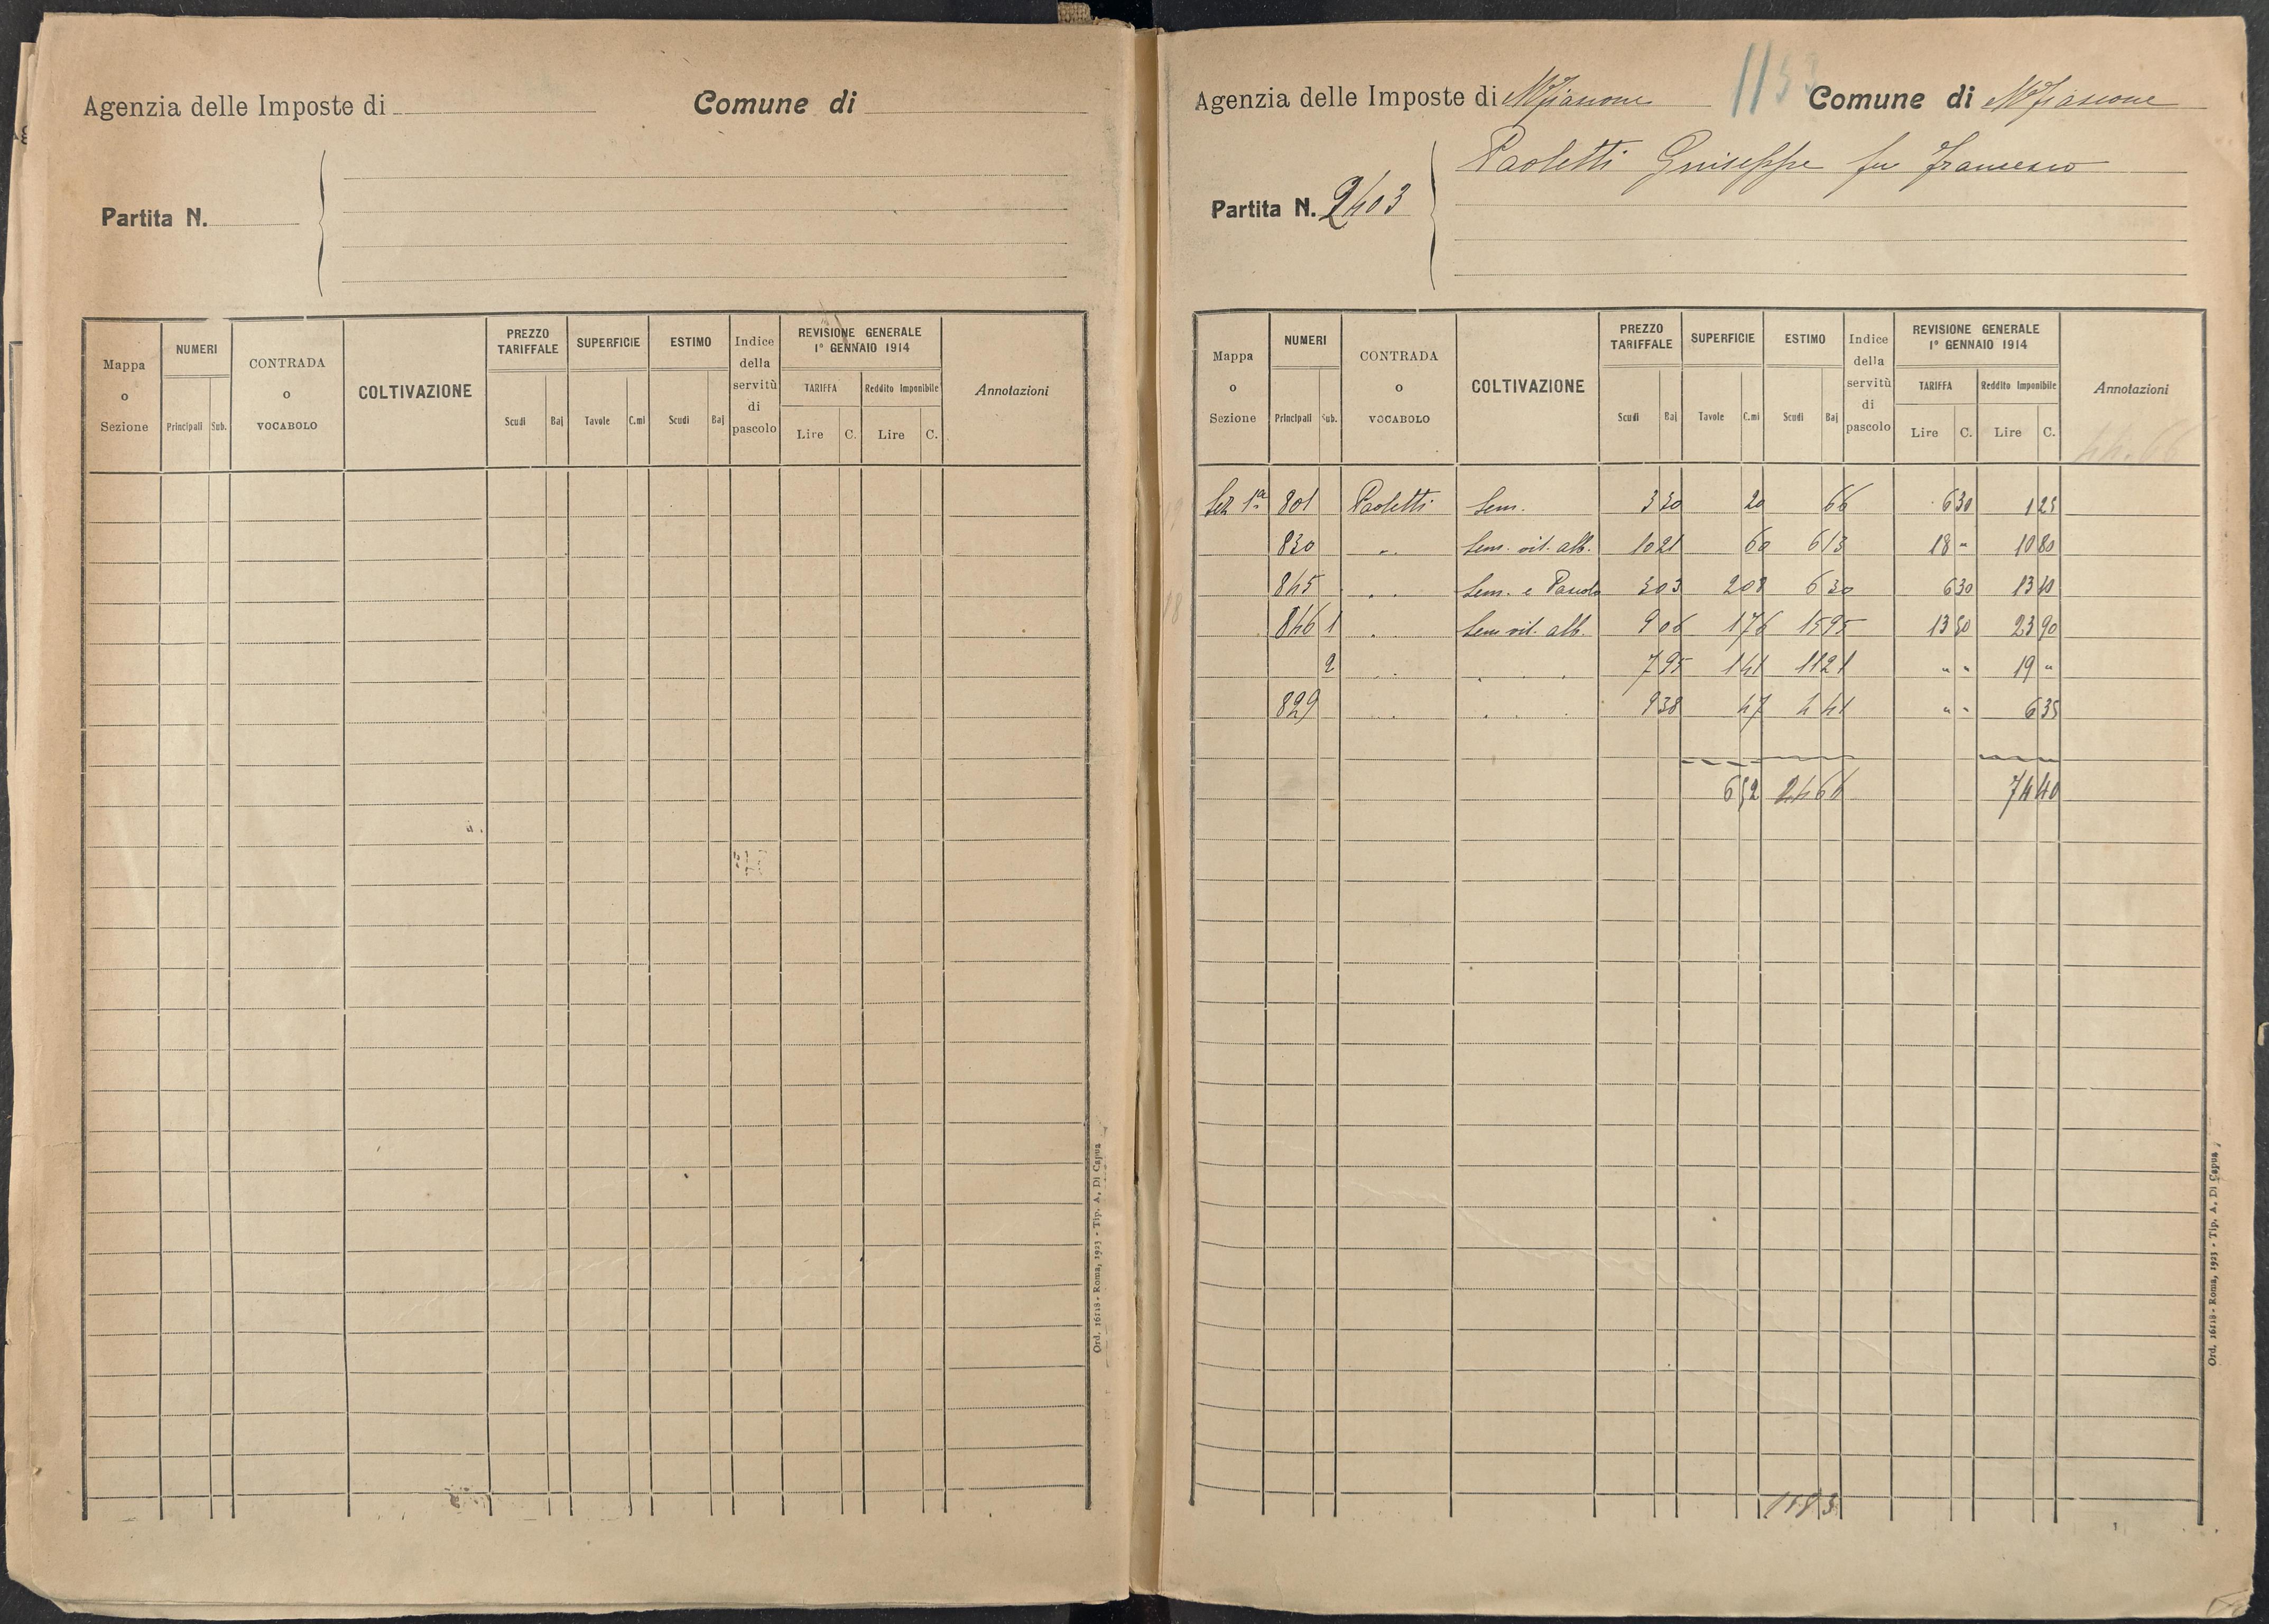 Agenzia delle Imposte di
Comune di
Partita N.
Mappa o Sezione
NUMERI
Principali Sub.
CONTRADA o VOCABOLO
COLTIVAZIONE
PREZZO TARIFFALE
Scudi Baj
SUPERFICIE
Tavole C.mi
ESTIMO
Scudi Baj
Indice della servitù di pascolo
REVISIONE GENERALE
1° GENNAIO 1914
TARIFFA Reddito Imponibile
Lire C. Lire C.
Annotazioni
Ord. 16118 - Roma, 1923 - Tip. A. Di Capua
Agenzia delle Imposte di Mfiascone
Comune di Mfiascone
Paoletti Giuseppe fu Francesco
Partita N. 2403
Mappa o Sezione
NUMERI
Principali Sub.
CONTRADA o VOCABOLO
COLTIVAZIONE
PREZZO TARIFFALE
Scudi Baj
SUPERFICIE
Tavole C.mi
ESTIMO
Scudi Baj
Indice della servitù di pascolo
REVISIONE GENERALE
1° GENNAIO 1914
TARIFFA Reddito Imponibile
Lire C. Lire C.
Annotazioni
Sez 1ª 801 Paoletti Sem. 3 30 20 66 6 30 1 25
830 " Sem. vit. alb. 10 21 60 6 13 18 " 10 80
845 " Sem. e Pascolo 3 03 208 6 30 6 30 13 10
846 1 " Sem vit. alb. 9 06 1 76 15 95 13 50 23 90
2 " " 7 95 1 41 11 21 " " 19 "
829 " " 9 38 47 4 41 " " 6 35
6 52 74 40
Ord. 16118 - Roma, 1923 - Tip. A. Di Capua